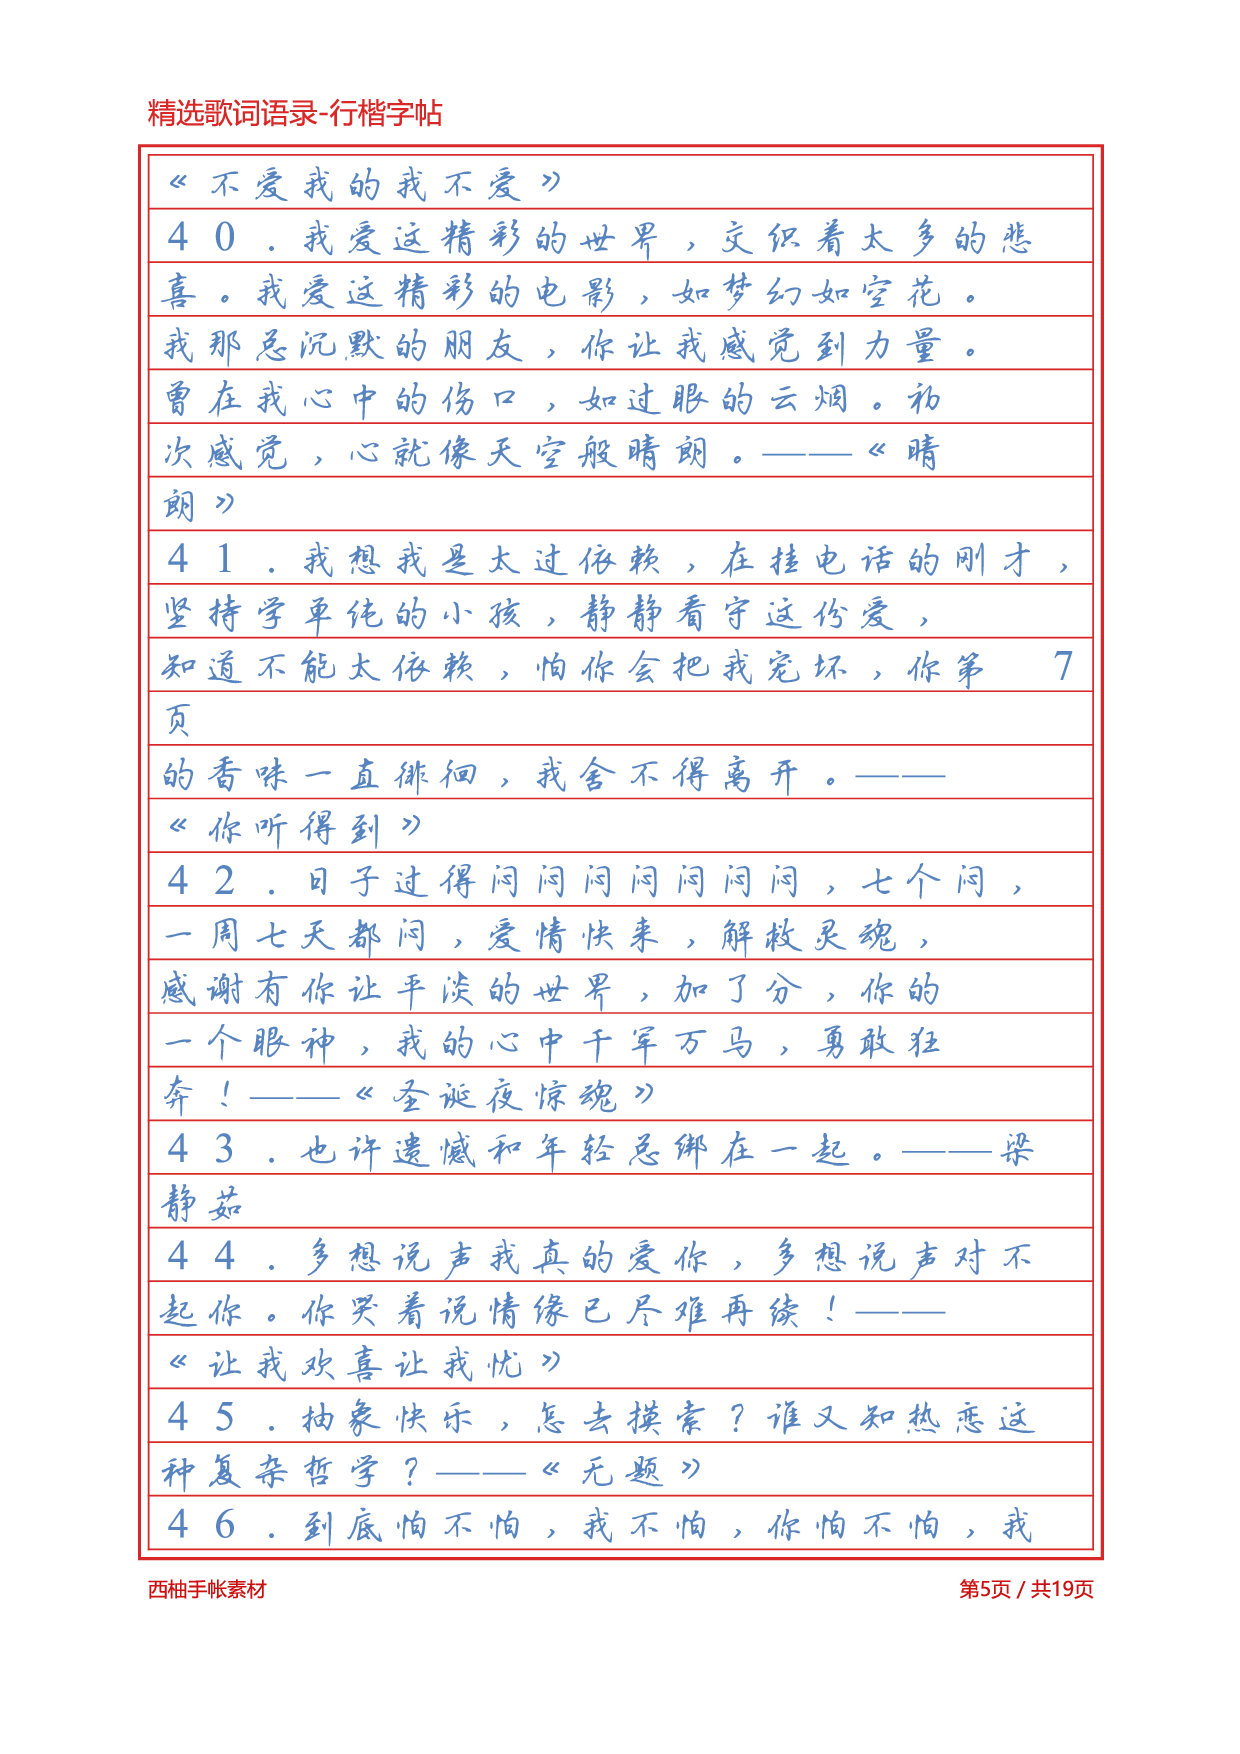 精选歌词语录-行楷字帖
《不爱我的我不爱》
40.我爱这精彩的世界,交织着太多的悲
喜。我爱这精彩的电影,如梦幻如空花。
我那总沉默的朋友,你让我感觉到力量。
曾在我心中的伤口,如过眼的云烟。初
次感觉,心就像天空般晴朗。——《晴
朗》
41.我想我是太过依赖,在挂电话的刚才,
坚持学单纯的小孩,静静看守这份爱,
知道不能太依赖,怕你会把我宠坏,你第 7
页
的香味一直徘徊,我舍不得离开。——
《你听得到》
42.日子过得闷闷闷闷闷闷闷,七个闷,
一周七天都闷,爱情快来,解救灵魂,
感谢有你让平淡的世界,加了分,你的
一个眼神,我的心中千军万马,勇敢狂
奔!——《圣诞夜惊魂》
43.也许遗憾和年轻总绑在一起。——梁
静茹
44.多想说声我真的爱你,多想说声对不
起你。你哭着说情缘已尽难再续!——
《让我欢喜让我忧》
45.抽象快乐,怎去摸索?谁又知热恋这
种复杂哲学?——《无题》
46.到底怕不怕,我不怕,你怕不怕,我
西柚手帐素材
第5页 / 共19页